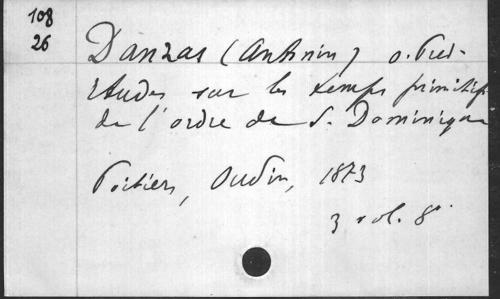 108
26
Danzas (Antonin) o. Pred.
Etudes sur les temps primitifs
de l'ordre de S. Dominique
Poitiers, Oudin, 1873
3 vol. 8°